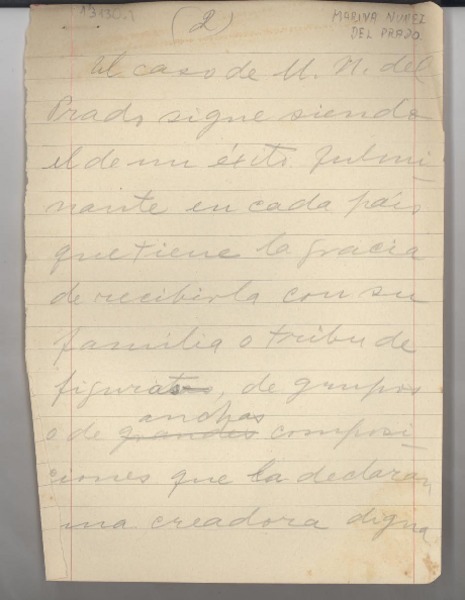 A3130-1
(2)
MARINA NUÑEZ
DEL PRADO
El caso de M. N. del
Prado, sigue siendo
el de un éxito fulmi-
nante en cada país
que tiene la gracia
de recibirla con su
familia o tribu de
figuras, de grupos
anchas
o de grandes composi-
ciones que la declaran
una creadora digna